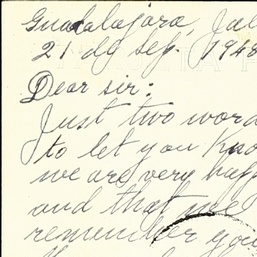 Guadalajara, Jal
21 de sep. 1948
Dear sir:
Just two word
to let you kno
we are very happ
and that we
remember you